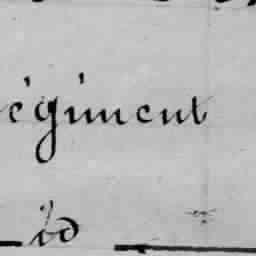 égiment
id